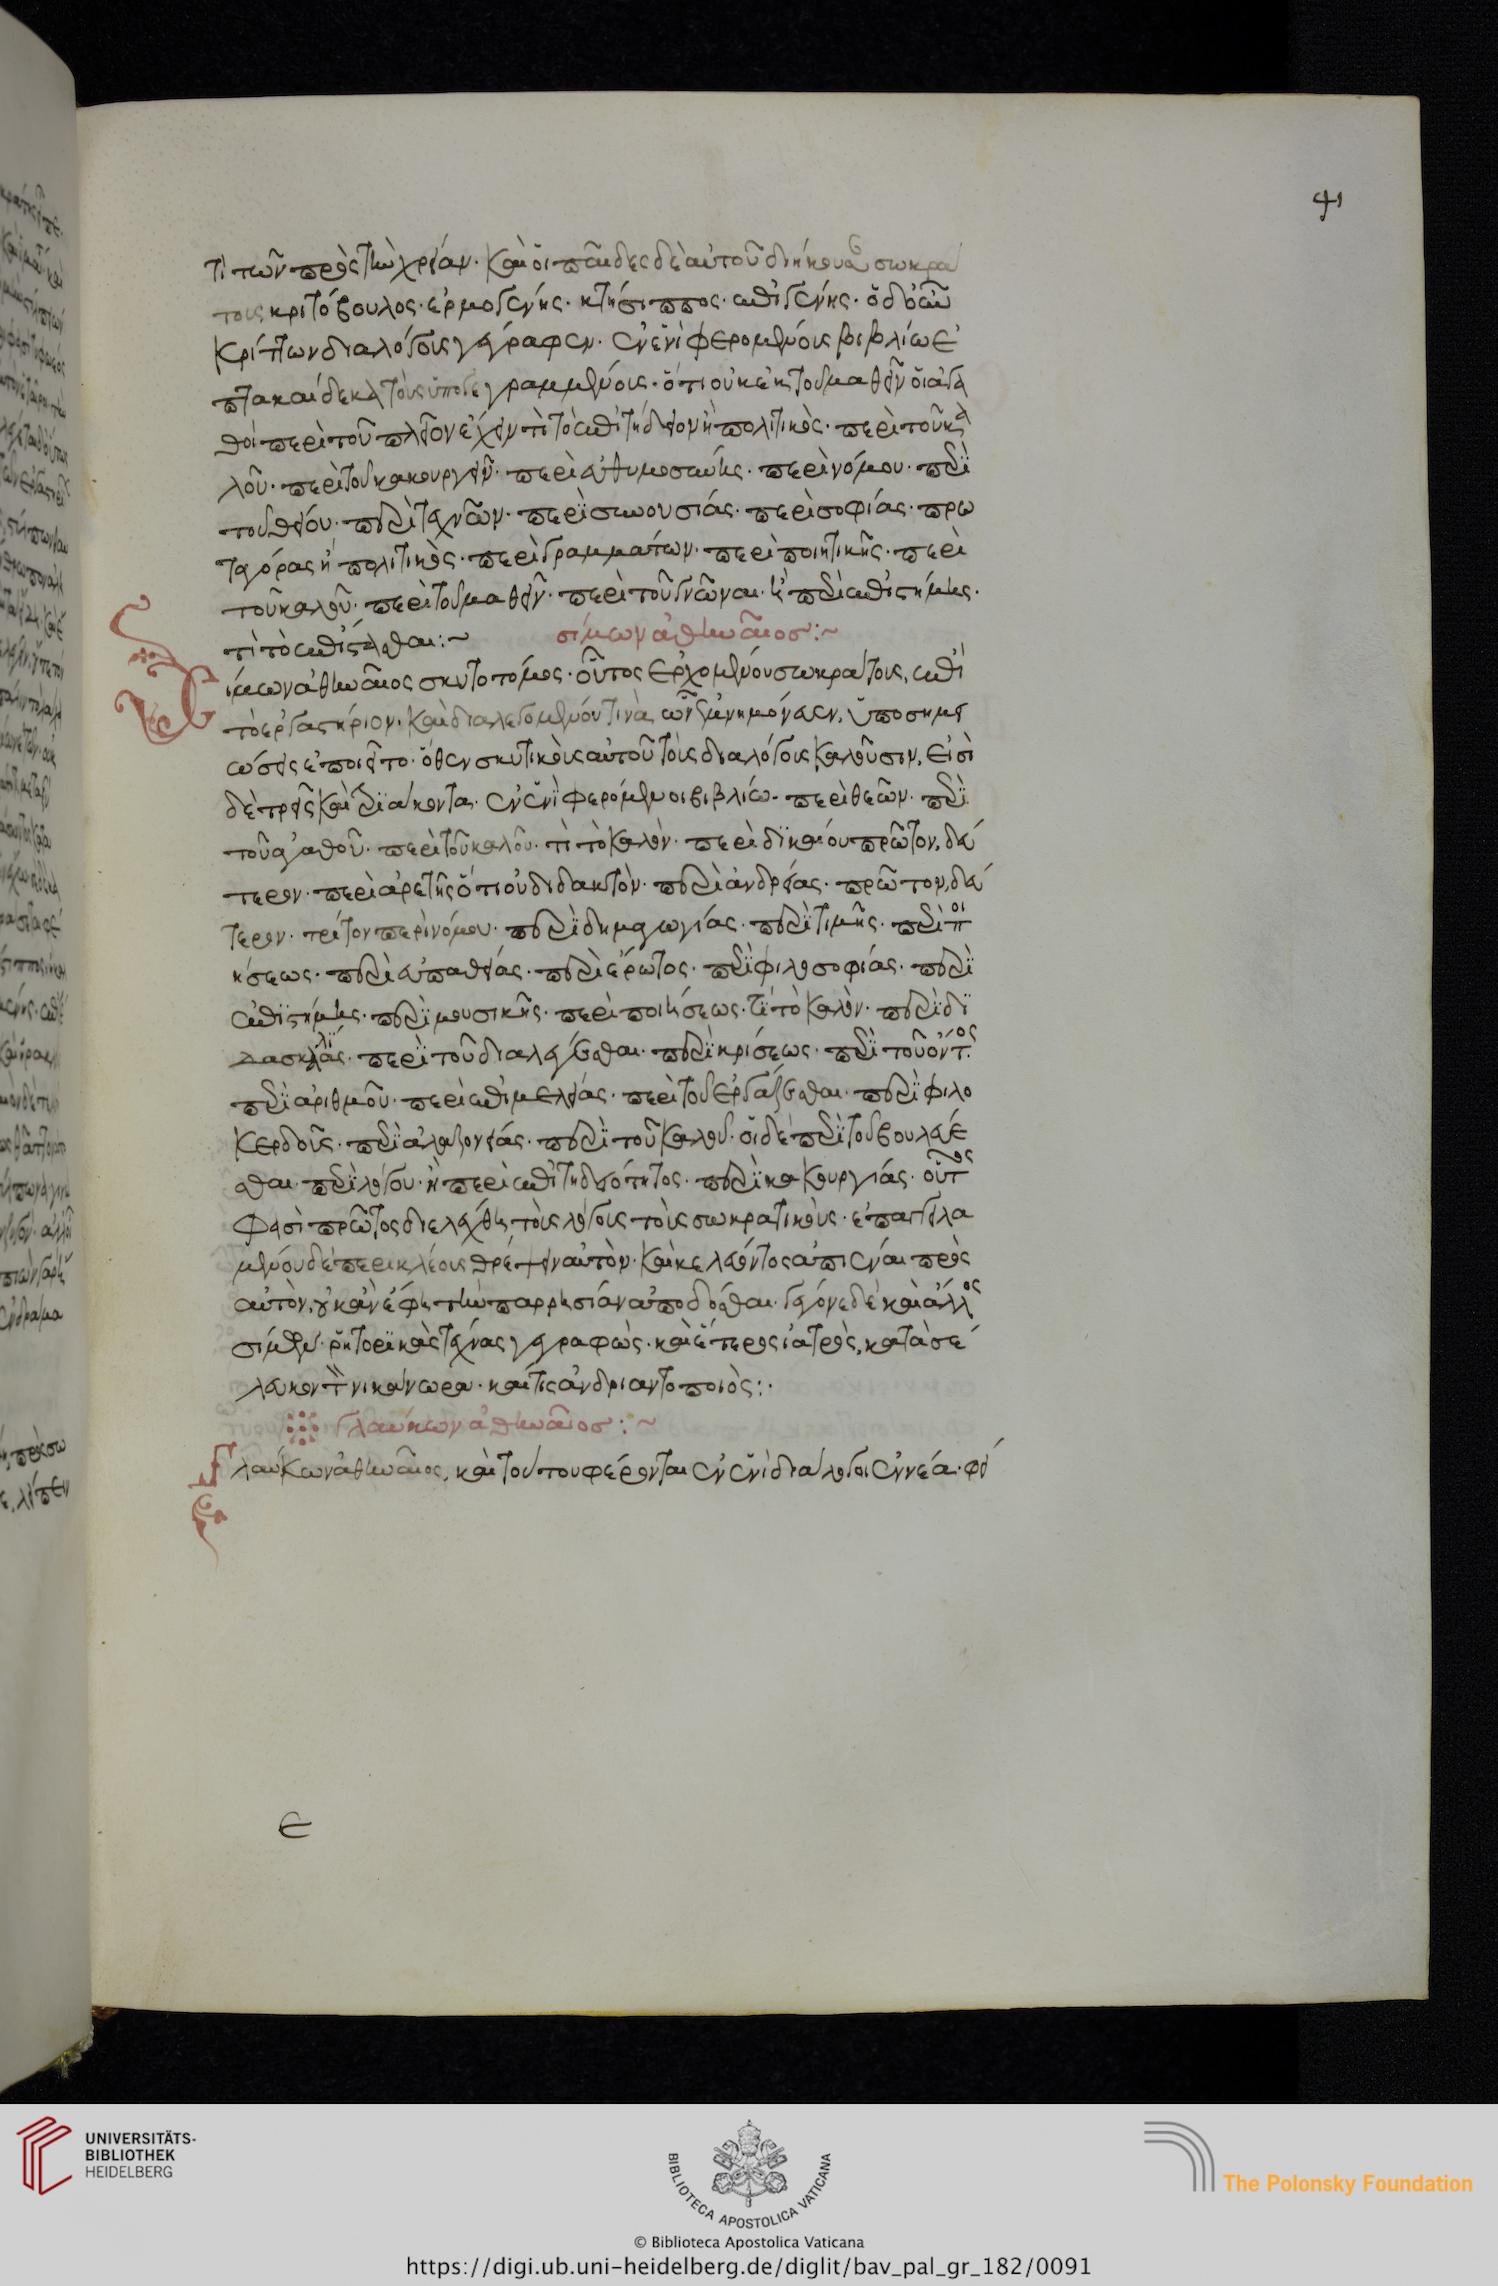 41
τι τῶν πρὸς τὴν χρείαν. καὶ οἱ παῖδες δὲ αὐτοῦ διήκουσαν σωκρα
τους κριτόβουλος. ἑρμογένης. κτήσιππος. ἐπιγένης. ὁ δ' οὖν
κρίτων διαλόγους γέγραφεν. ἐν ἑνὶ φερομένους βιβλίω ἑ
πτακαίδεκα τοὺς ὑπογεγραμμένους. ὅτι οὐκ ἐκ τοῦ μαθεῖν οἱ ἀγα
θοί περὶ τοῦ πλεῖον ἔχειν τί τὸ ἐπιτήδειον ἢ πολιτικὸς. περὶ τοῦ κα
λοῦ. περὶ τοῦ κακουργεῖν. περὶ εὐθυμοσύνης. περὶ νόμου. περὶ
τοῦ θείου. περὶ τεχνῶν. περὶ συνουσίας. περὶ σοφίας. πρω
ταγόρας ἢ πολιτικὸς. περὶ γραμμάτων. περὶ ποιητικῆς. περὶ
τοῦ καλοῦ. περὶ τοῦ μαθεῖν. περὶ τοῦ γνῶναι. ἢ περὶ ἐπιστήμης.
τί τὸ ἐπίστασθαι:~ σίμων ἀθηναῖος:~
σίμων ἀθηναῖος σκυτοτόμος. οὗτος ἐρχομένου σωκράτους, ἐπὶ
τὸ ἐργαστήριον. καὶ διαλεγομένου τινὰ, ὧν ἐμνημόνευεν, ὑποσημει
ώσεις ἐποιεῖτο. ὅθεν σκυτικοὺς αὐτοῦ τοὺς διαλόγους καλοῦσιν. εἰσὶ
δὲ τρεῖς καὶ τριάκοντα. ἐν ἑνὶ φερόμενοι βιβλίω. περὶ θεῶν. περὶ
τοῦ ἀγαθοῦ. περὶ τοῦ καλοῦ. τί τὸ καλόν. περὶ δικαίου πρῶτον, δεύ
τερον. περὶ ἀρετῆς ὅτι οὐ διδακτόν. περὶ ἀνδρείας. πρῶτον, δεύ
τερον. τρίτον περὶ νόμου. περὶ δημαγωγίας. περὶ τιμῆς. περὶ ποι
ήσεως. περὶ εὐπαθείας. περὶ ἔρωτος. περὶ φιλοσοφίας. περὶ
ἐπιστήμης. περὶ μουσικῆς. περὶ ποιήσεως. τί τὸ καλόν. περὶ δι
δασκαλίας. περὶ τοῦ διαλέγεσθαι. περὶ κρίσεως. περὶ τοῦ ὄντος.
περὶ ἀριθμοῦ. περὶ ἐπιμελείας. περὶ τοῦ ἐργάζεσθαι. περὶ φιλο
κερδοῦς. περὶ ἀλαζονείας. περὶ τοῦ καλοῦ. οἱ δὲ περὶ τοῦ βουλεύε
σθαι. περὶ λόγου. ἢ περὶ ἐπιτηδειότητος. περὶ κακουργίας. οὗτος
φασὶ πρῶτος διελέχθη τοὺς λόγους τοὺς σωκρατικούς. ἐπαγγειλα
μένου δὲ περικλέους θρέψειν αὐτὸν. καὶ κελεύοντος ἀπιέναι πρὸς
αὐτὸν, οὐκ ἂν ἔφη τὴν παρρησίαν ἀποδόσθαι. γέγονε δὲ καὶ ἄλλος
σίμων. ῥητορικὰς τέχνας γεγραφώς. καὶ ἕτερος ἰατρὸς, κατὰ σέ
λευκον τὸν νικάνωρα. καί τις ἀνδριαντοποιός:.
γλαύκων ἀθηναῖος:~
γλαύκων ἀθηναῖος, καὶ τούτου φέρονται ἐν ἑνὶ διάλογοι ἐννέα. φει
ε
UNIVERSITÄTS-
BIBLIOTHEK
HEIDELBERG
BIBLIOTECA APOSTOLICA VATICANA
The Polonsky Foundation
© Biblioteca Apostolica Vaticana
https://digi.ub.uni-heidelberg.de/diglit/bav_pal_gr_182/0091